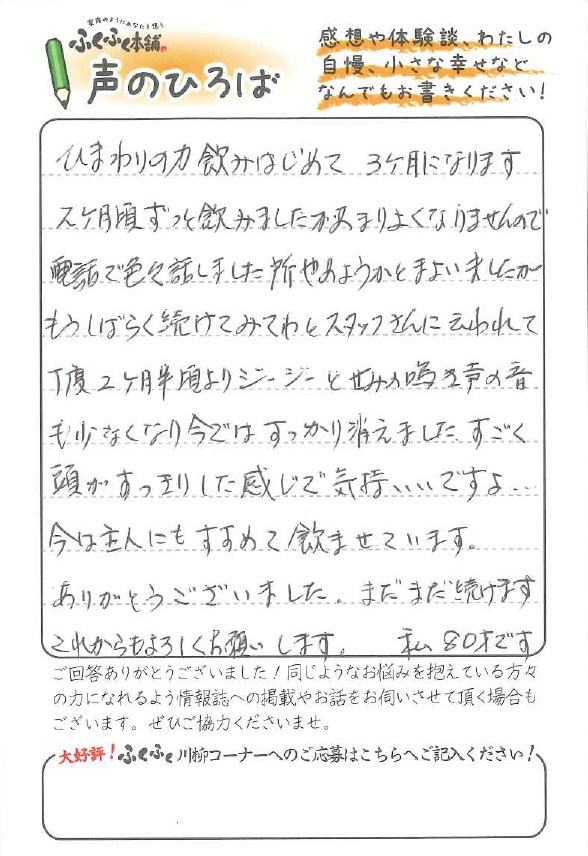 家族のようにあなたを想う
ふくふく本舗
声のひろば
感想や体験談、わたしの
自慢、小さな幸せなど
なんでもお書きください！
ひまわりの力飲みはじめて 3ケ月になります
2ケ月頃ずっと飲みましたがあまりよくなりませんので
電話で色々話しました所やめようかとまよいましたが
もうしばらく続けてみてわとスタッフさんに云われて
丁度2ケ月半頃よりジージーとせみの鳴き声の音
も少なくなり今ではすっかり消えました すごく
頭がすっきりした感じで気持いいですよ…
今は主人にもすすめて飲ませています。
ありがとうございました。まだまだ続けます
これからもよろしくお願いします。 私80才です
ご回答ありがとうございました！同じようなお悩みを抱えている方々
の力になれるよう情報誌への掲載やお話をお伺いさせて頂く場合も
ございます。ぜひご協力くださいませ。
大好評！ふくふく川柳コーナーへのご応募はこちらへご記入ください！